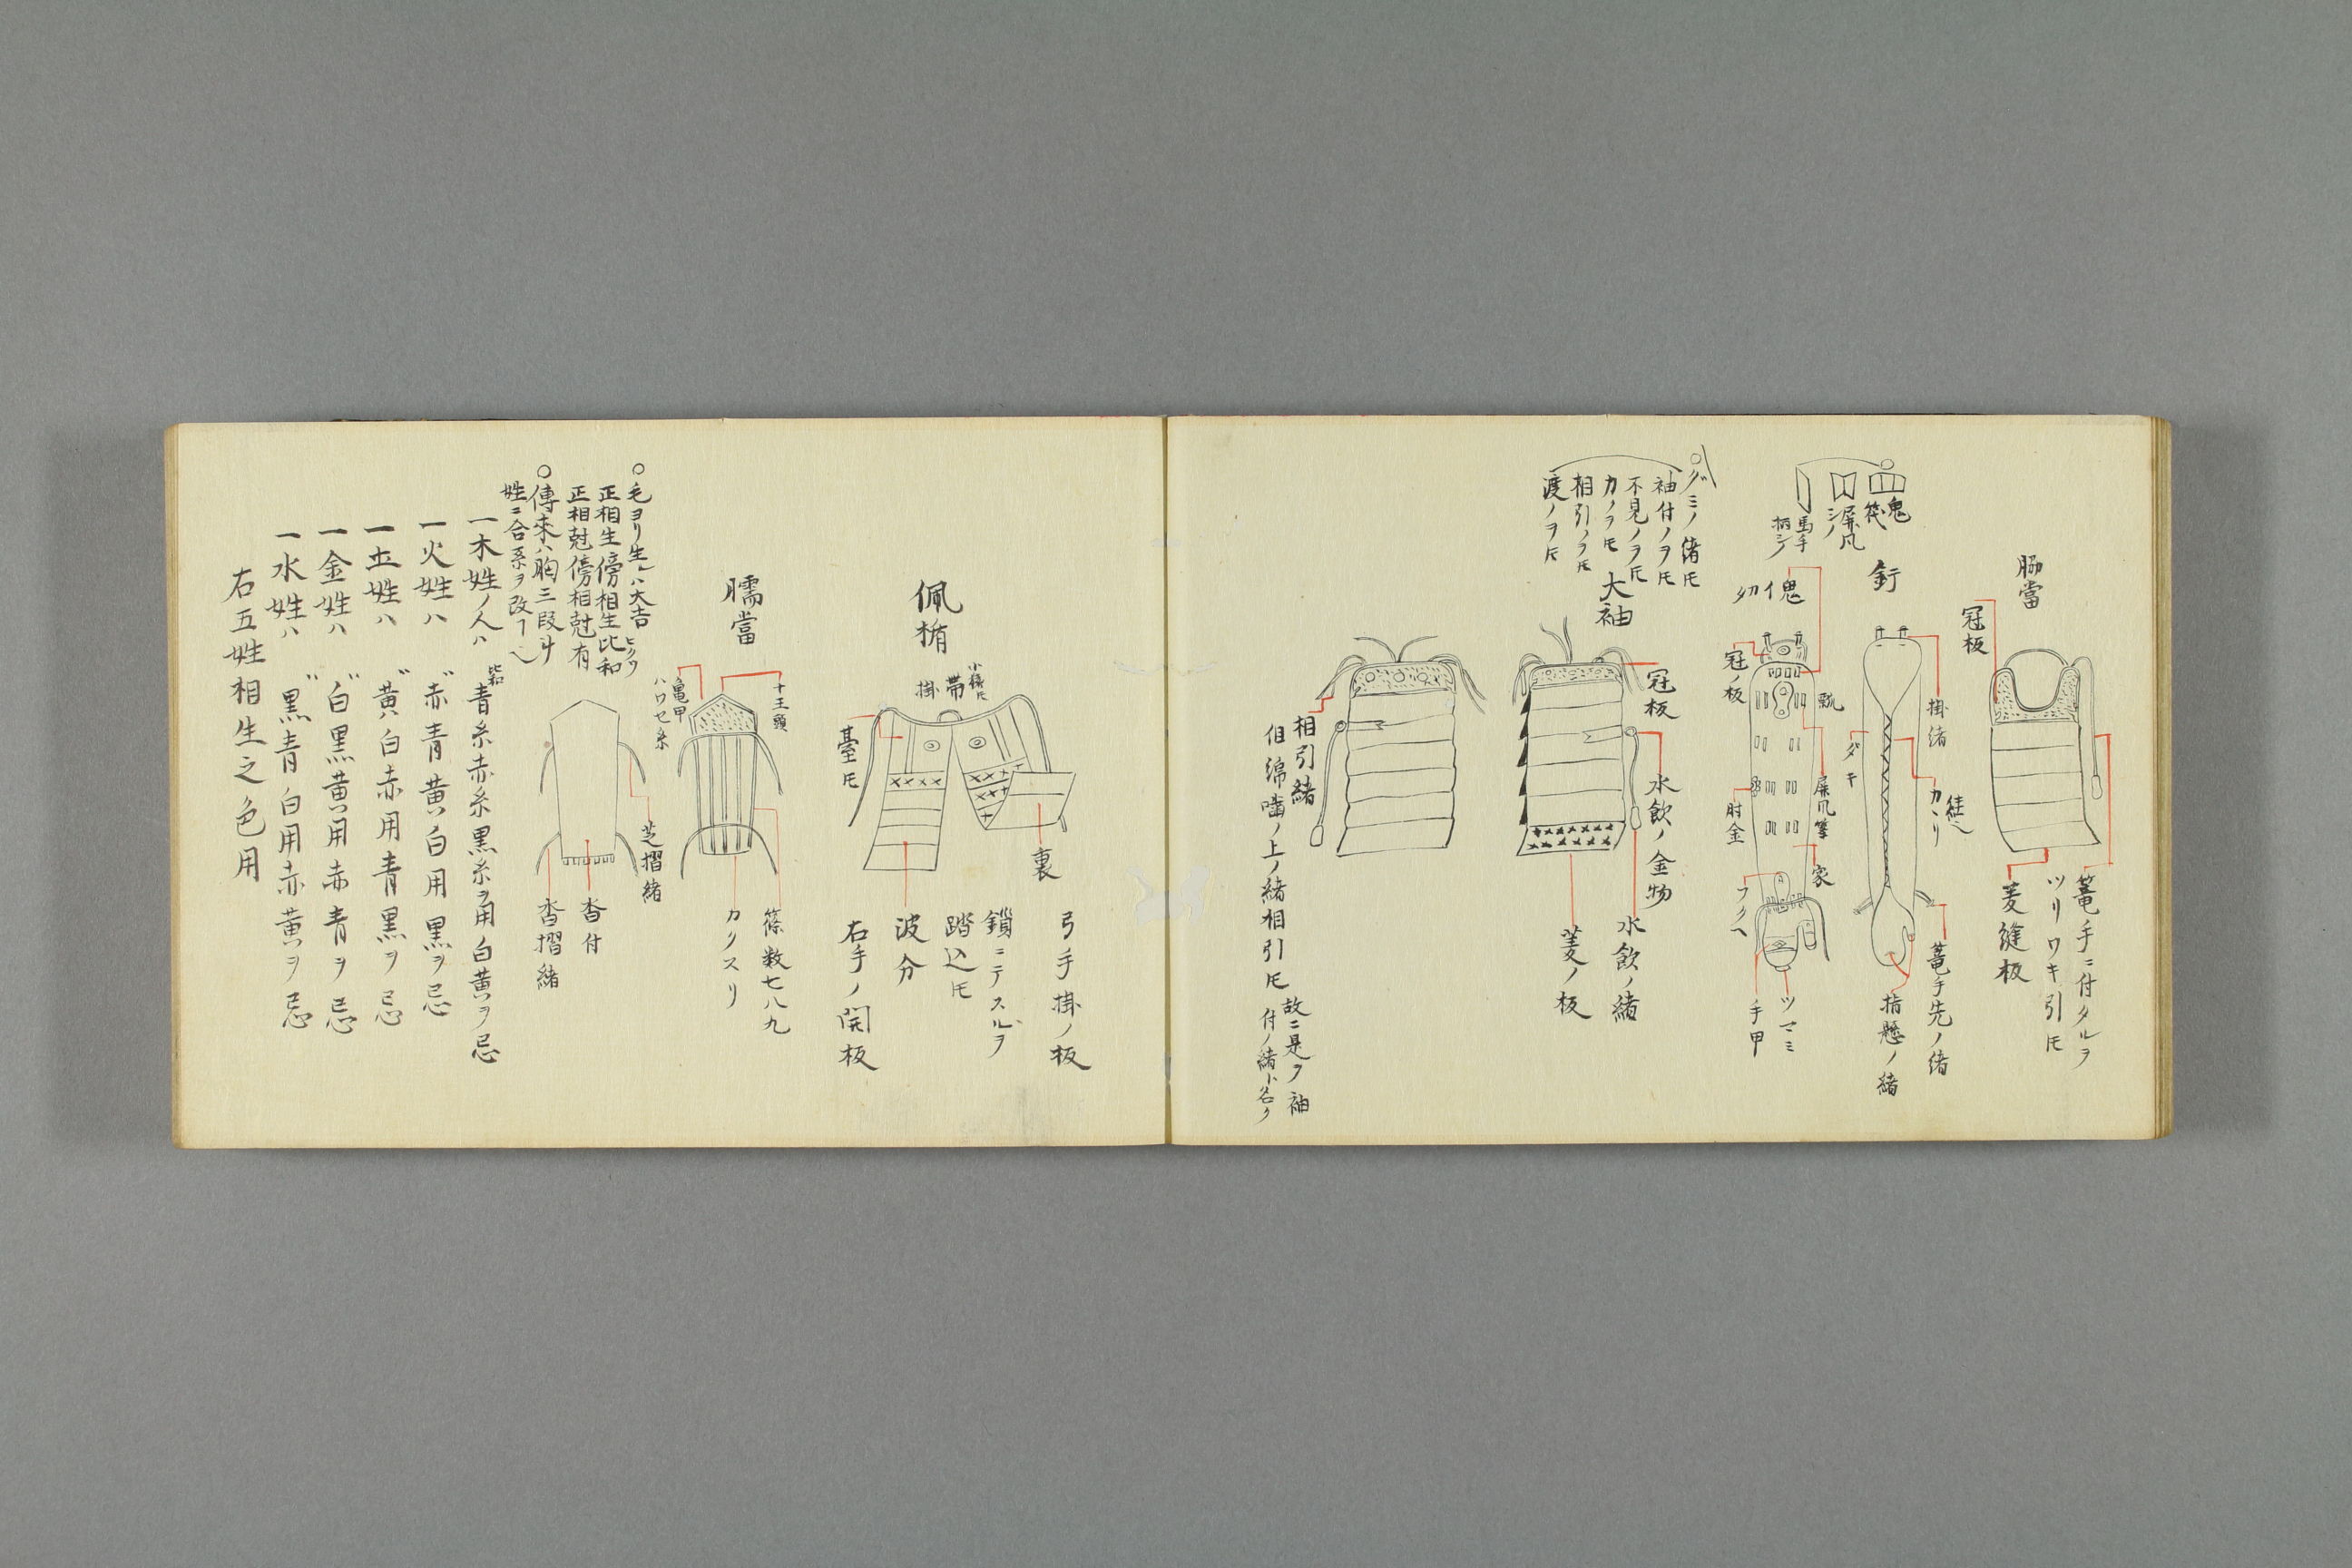 脇當
冠板
篭手ニ付タルヲ
ツリワキ引𪜈
菱縫板
釘
掛緒
カヽリ
ダキ
篭手先ノ緒
指懸ノ緒
鬼
屏風
馬手
冠ノ板
瓢
屏風
肘金
家
フクヘ
ツマミ
手甲
グミノ緒𪜈
袖付ノヲ𪜈
不見ノヲ𪜈
力ノヲ𪜈
相引ノヲ𪜈
渡ノヲ𪜈
大袖
冠板
水飲ノ金物
水飲ノ緒
菱ノ板
相引緒
但綿噛ノ上ノ緒相引𪜈
故ニ是ヲ袖
付ノ緒ト名ク
佩楯
掛帯
臺𪜈
裏
弓手掛ノ板
鎖ニテスルヲ
踏込𪜈
波分
右手ノ開板
臑當
十王頭
亀甲
ハワセ糸
篠数七八九
カクスリ
芝摺緒
沓付
沓摺緒
○毛ヨリ生ルハ大吉
正相生傍相生比和
正相尅傍相尅有
○傳来ハ胸三段斗
姓ニ合糸ヲ改フヘ
一木姓ノ人ハ比和青糸赤糸黒糸ヲ用白黄ヲ忌
一火姓ハ〃赤青黄白用黒ヲ忌
一土姓ハ〃黄白赤用青黒ヲ忌
一金姓ハ〃白黒黄用赤青ヲ忌
一水姓ハ〃黒青白用赤黄ヲ忌
右五姓相生之色用